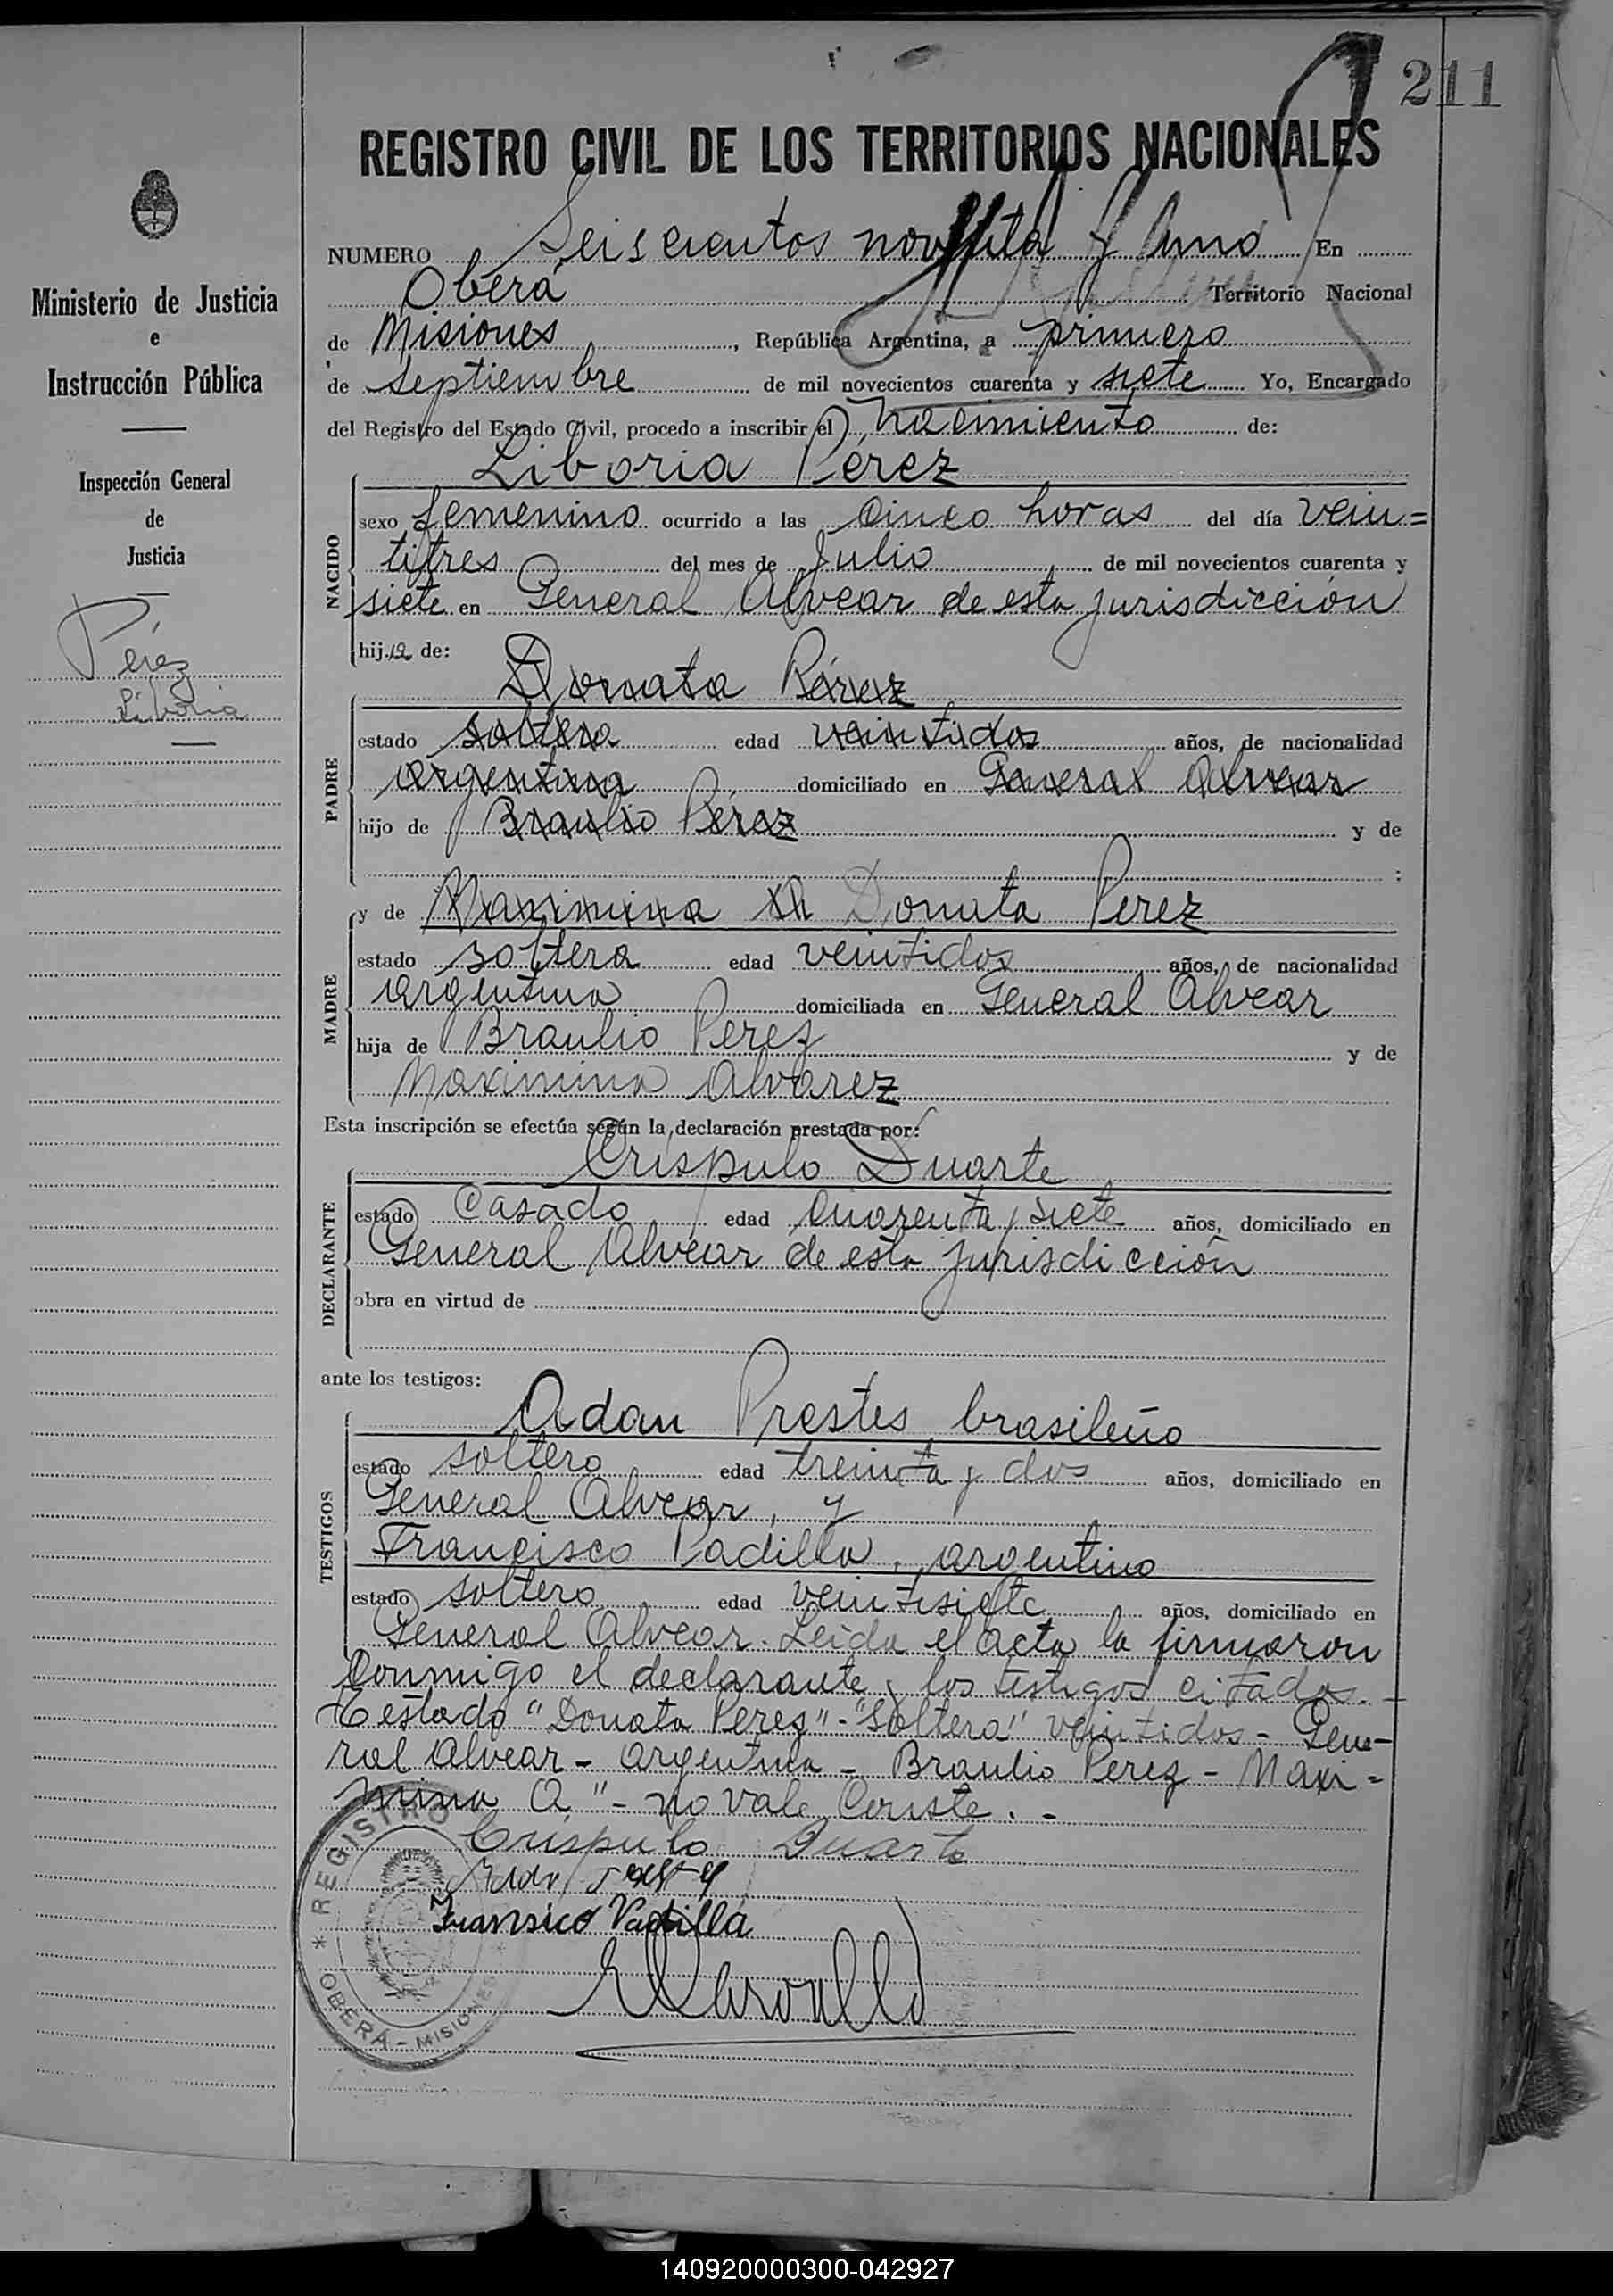 211
REGISTRO CIVIL DE LOS TERRITORIOS NACIONALES
Ministerio de Justicia
e
Instrucción Pública
Inspección General
de
Justicia
Pérez
Liboria
NUMERO Seiscientos noventa y uno En
Oberá Territorio Nacional
de Misiones, República Argentina, a primero
de septiembre de mil novecientos cuarenta y siete Yo, Encargado
del Registro del Estado Civil, procedo a inscribir el Nacimiento de:
Liboria Pérez
NACIDO
sexo femenino ocurrido a las cinco horas del día vein=
titres del mes de Julio de mil novecientos cuarenta y
siete en General Alvear de esta jurisdicción
hija de:
Donata Pérez
PADRE
estado soltera edad veintidos años, de nacionalidad
argentina domiciliado en General Alvear
hijo de Braulio Pérez y de
:
MADRE
y de Maximina A Donata Perez
estado soltera edad veintidos años, de nacionalidad
argentina domiciliada en General Alvear
hija de Braulio Perez y de
Maximina Alvarez
Esta inscripción se efectúa según la declaración prestada por:
Crispulo Duarte
DECLARANTE
estado casado edad cuarenta y siete años, domiciliado en
General Alvear de esta jurisdicción
obra en virtud de
ante los testigos:
TESTIGOS
Adan Prestes, brasileño
estado soltero edad treinta y dos años, domiciliado en
General Alvear, y
Francisco Padilla, argentino
estado soltero edad veintisiete años, domiciliado en
General Alvear. Leida el acta la firmaron
conmigo el declarante y los testigos citados.-
Testado "Donata Perez"-"Soltera" veintidos - Gene-
ral Alvear - argentina - Braulio Perez - Maxi=
mina A" - no vale. Conste. -
Crispulo Duarte
Fransico Vadilla
* REGISTRO * OBERÁ - MISIONES
140920000300-042927